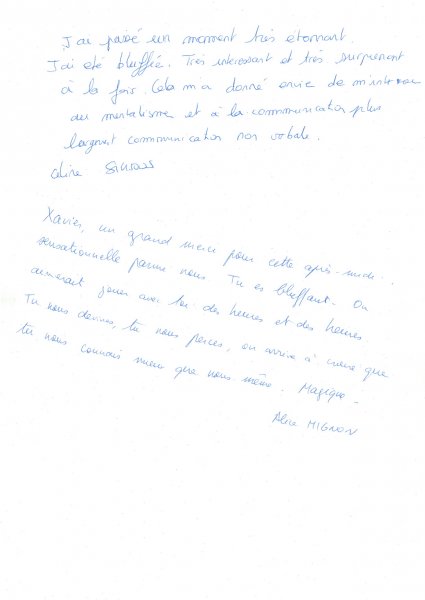 J'ai passé un moment très étonnant.
J'ai été bluffée. Très intéressant et très surprenant
à la fois. Cela m'a donné envie de m'intéresser
au mentalisme et à la communication plus
largement communication non verbale.
Céline
Xavier, un grand merci pour cette après-midi
sensationnelle parmi nous. Tu es bluffant. On
aimerait jouer avec toi des heures et des heures.
Tu nous devines, tu nous perces, on arrive à croire que
tu nous connais mieux que nous même. Magique.
Alice MIGNON